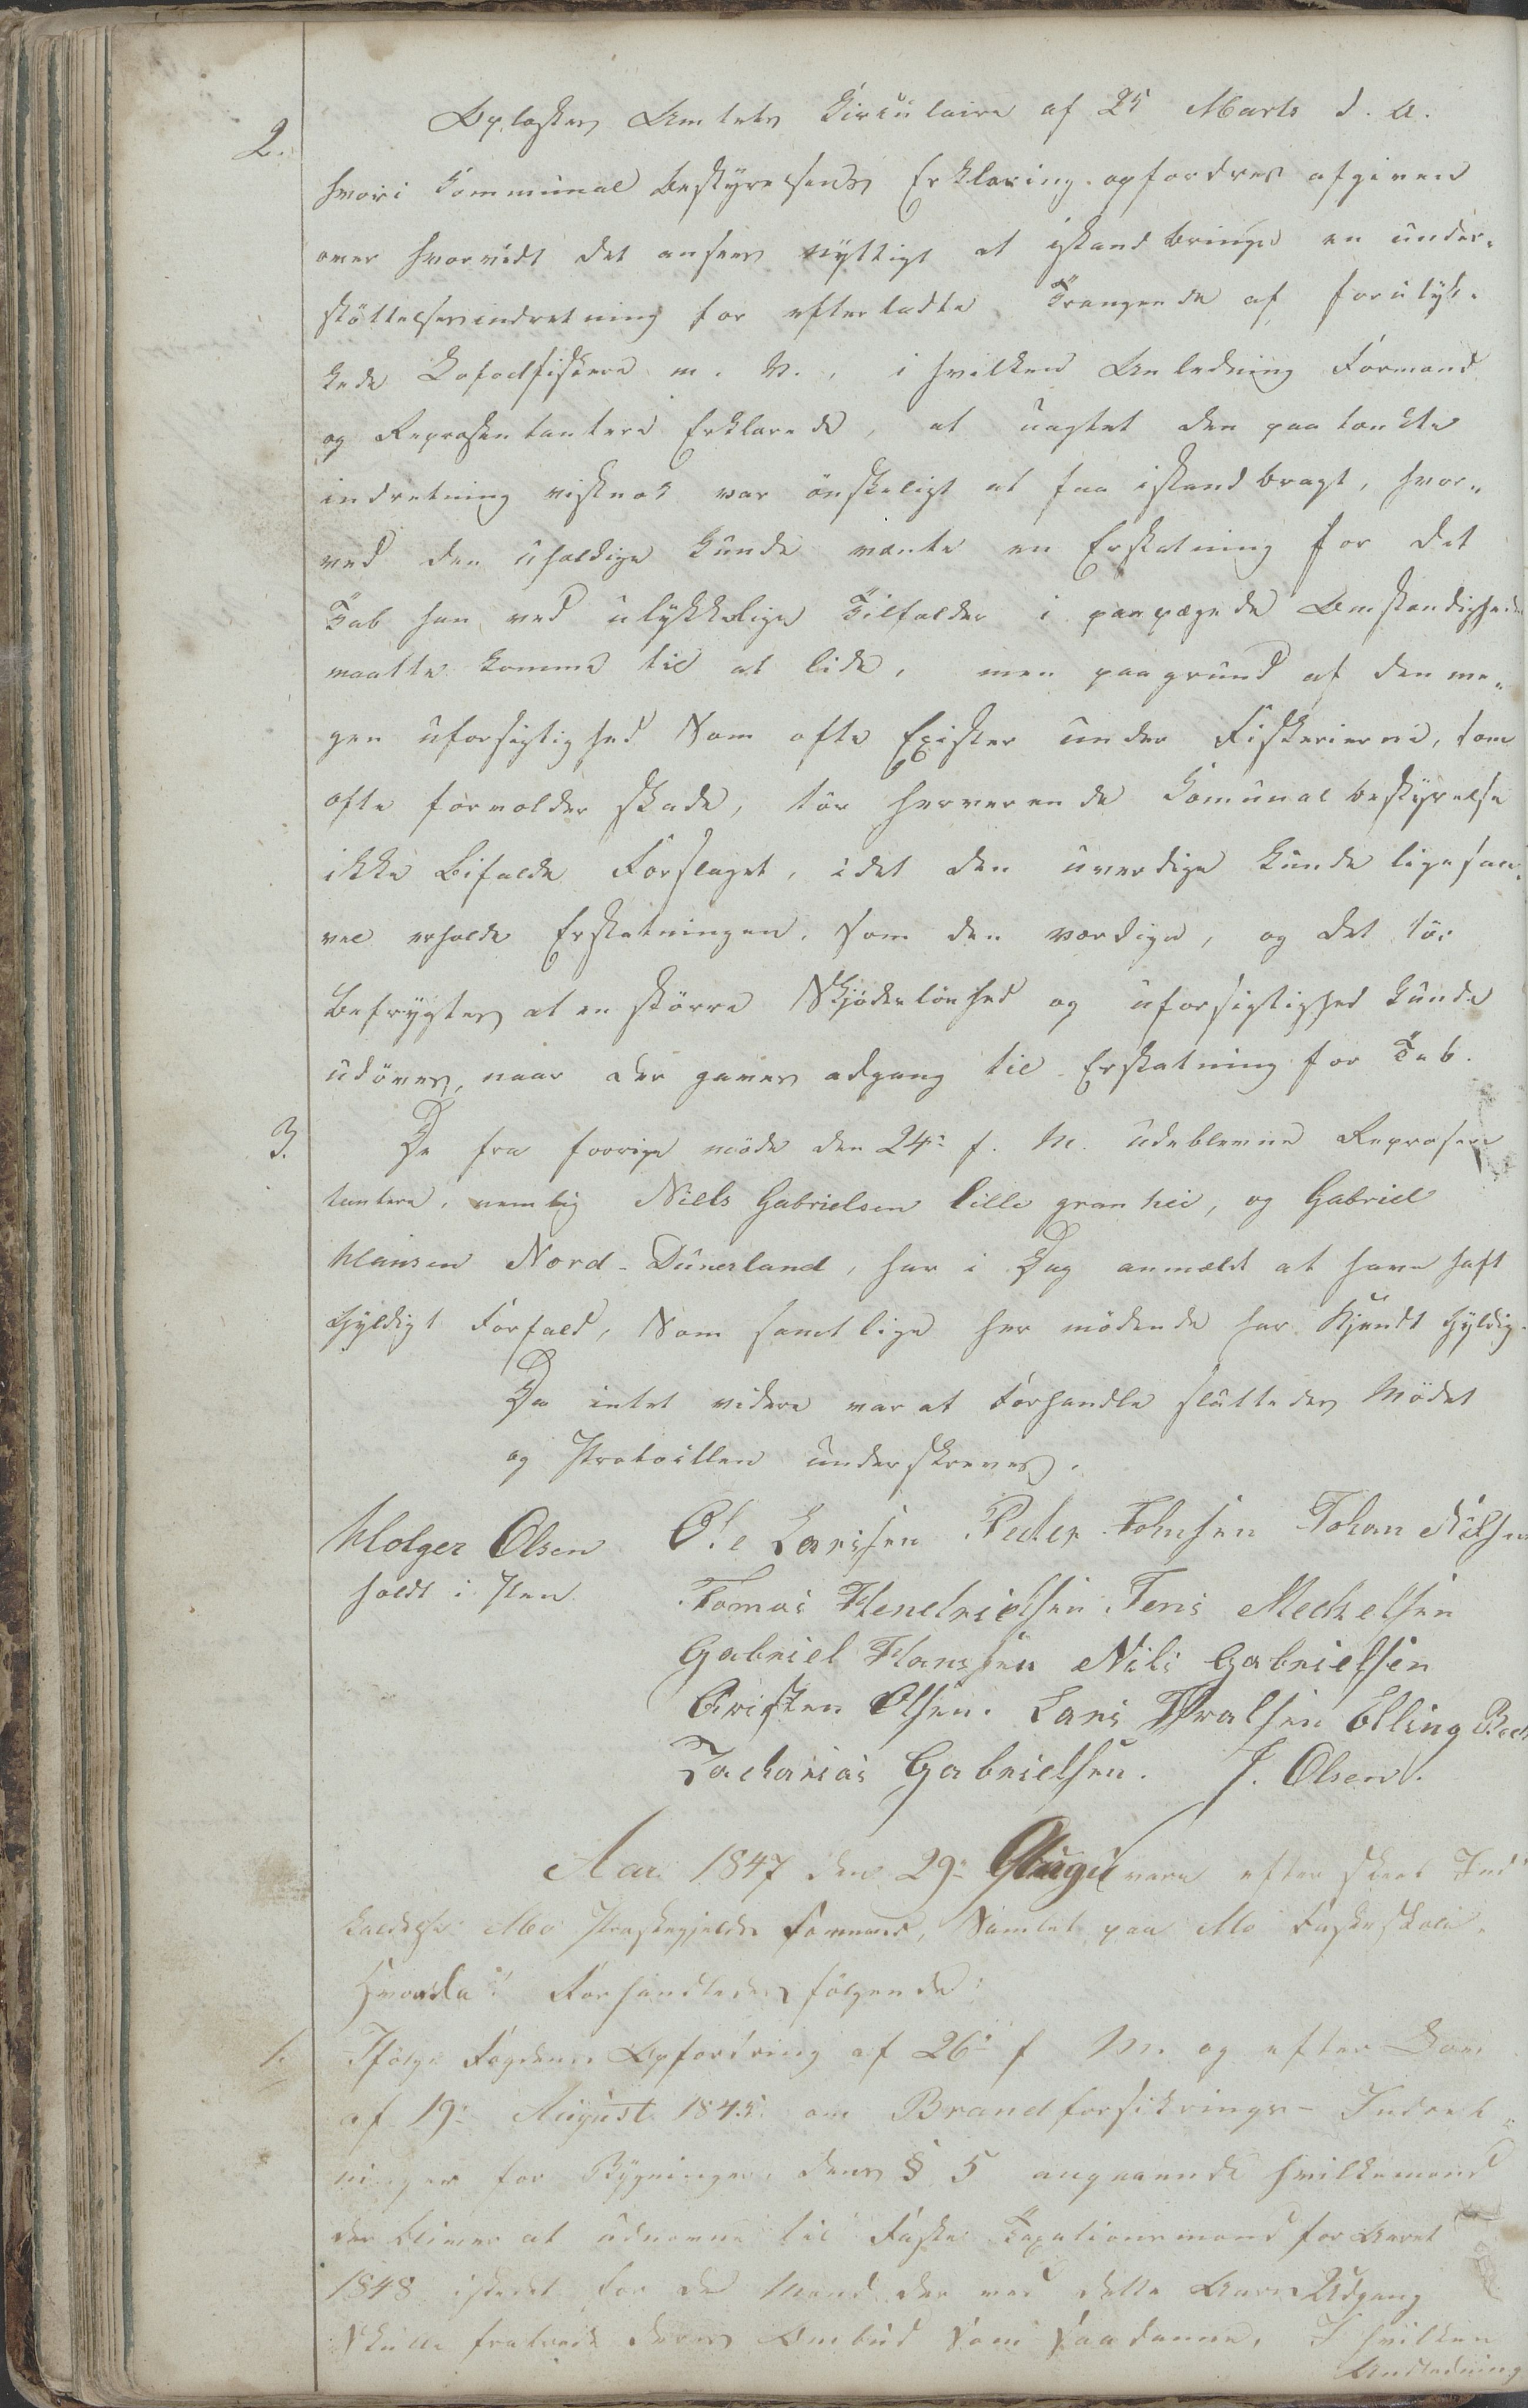 2. Oplæstes Amtets Circulaire af 25 Marts d. A.
hvori Communal Bestyrelsens Erklæring opfordres afgiven
over hvorvidt det ansees nyttigt at istandbringe en under-
støttelsesindretning for efterladte Trængende af forulyk-
kede Lofodfiskere m. V., i hvilken Anledning Formand
og Repræsentantere Erklærede, at uagtet den paatænkte
indretning vistnok var ønskeligt at faa istandbragt, hvor-
ved den uheldige kunde vente en Erstatning for det
Tab han ved ulykkelige Tilfælder i paapegede Omstændigheder
maatte komme til at lide, men paagrund af den me-
gen uforsigtighed Som ofte Existerer under Fiskerierne, som
ofte forvolder skade, tør herværende Comunalbestyrelse
ikke bifalde Forslaget, idet den uverdige kunde ligesaa-
vel erholde Erstatningen, Som den værdige, og det tør
befrygtes at en større Skjødesløshed og uforsigtighed kunde
udøves, naar der gaves adgang til Erstatning for Tab.
3. De fra forrige møde den 24: f. M. udeblevne Repræsen
tantere, nemlig Niels Gabrielsen lille granhei, og Gabriel
Hansen Nord-Dunerland, har i Dag anmældt at have haft
Gyldigt Forfald, Som samtlige her mødende har kjendt Gyldig.
Da intet videre var at Forhandle sluttedes Mødet
og Protocollen underskreves.
Holger Olsen Ole Larssen Peder Johnsen Johan Nilsen
holdt i Pen Tomas Hendrichsen Jens Mechelsen
Gabriel Hanssen Nils Gabrielsen
Cristen Olsen. Lars Ivralsen Elling Beck
Zacharias Gabrielsen. J. Olsen.
Aar 1847 den 29: Augu vare efter skeet Ind
kaldelse Mo Præstegjelds Formænd, Samlet paa Mo Fasteskole,
Hvorda Forhandledes følgende:
1. Ifølge Fogdens Opfordring af 26: f M. og efter Lov
af 19: August 1845 om Brandforsikrings-Indret-
ninger for Bygninger, dens § 5 angaaende hvilke mænd
der bliver at udnævne til Faste Taxationsmænd for Aaret
1848 istedet for de Mænd der ved dette Aars Udgang
skulle fratræde deres Ombud som saadanne, I hvilken
Andledning